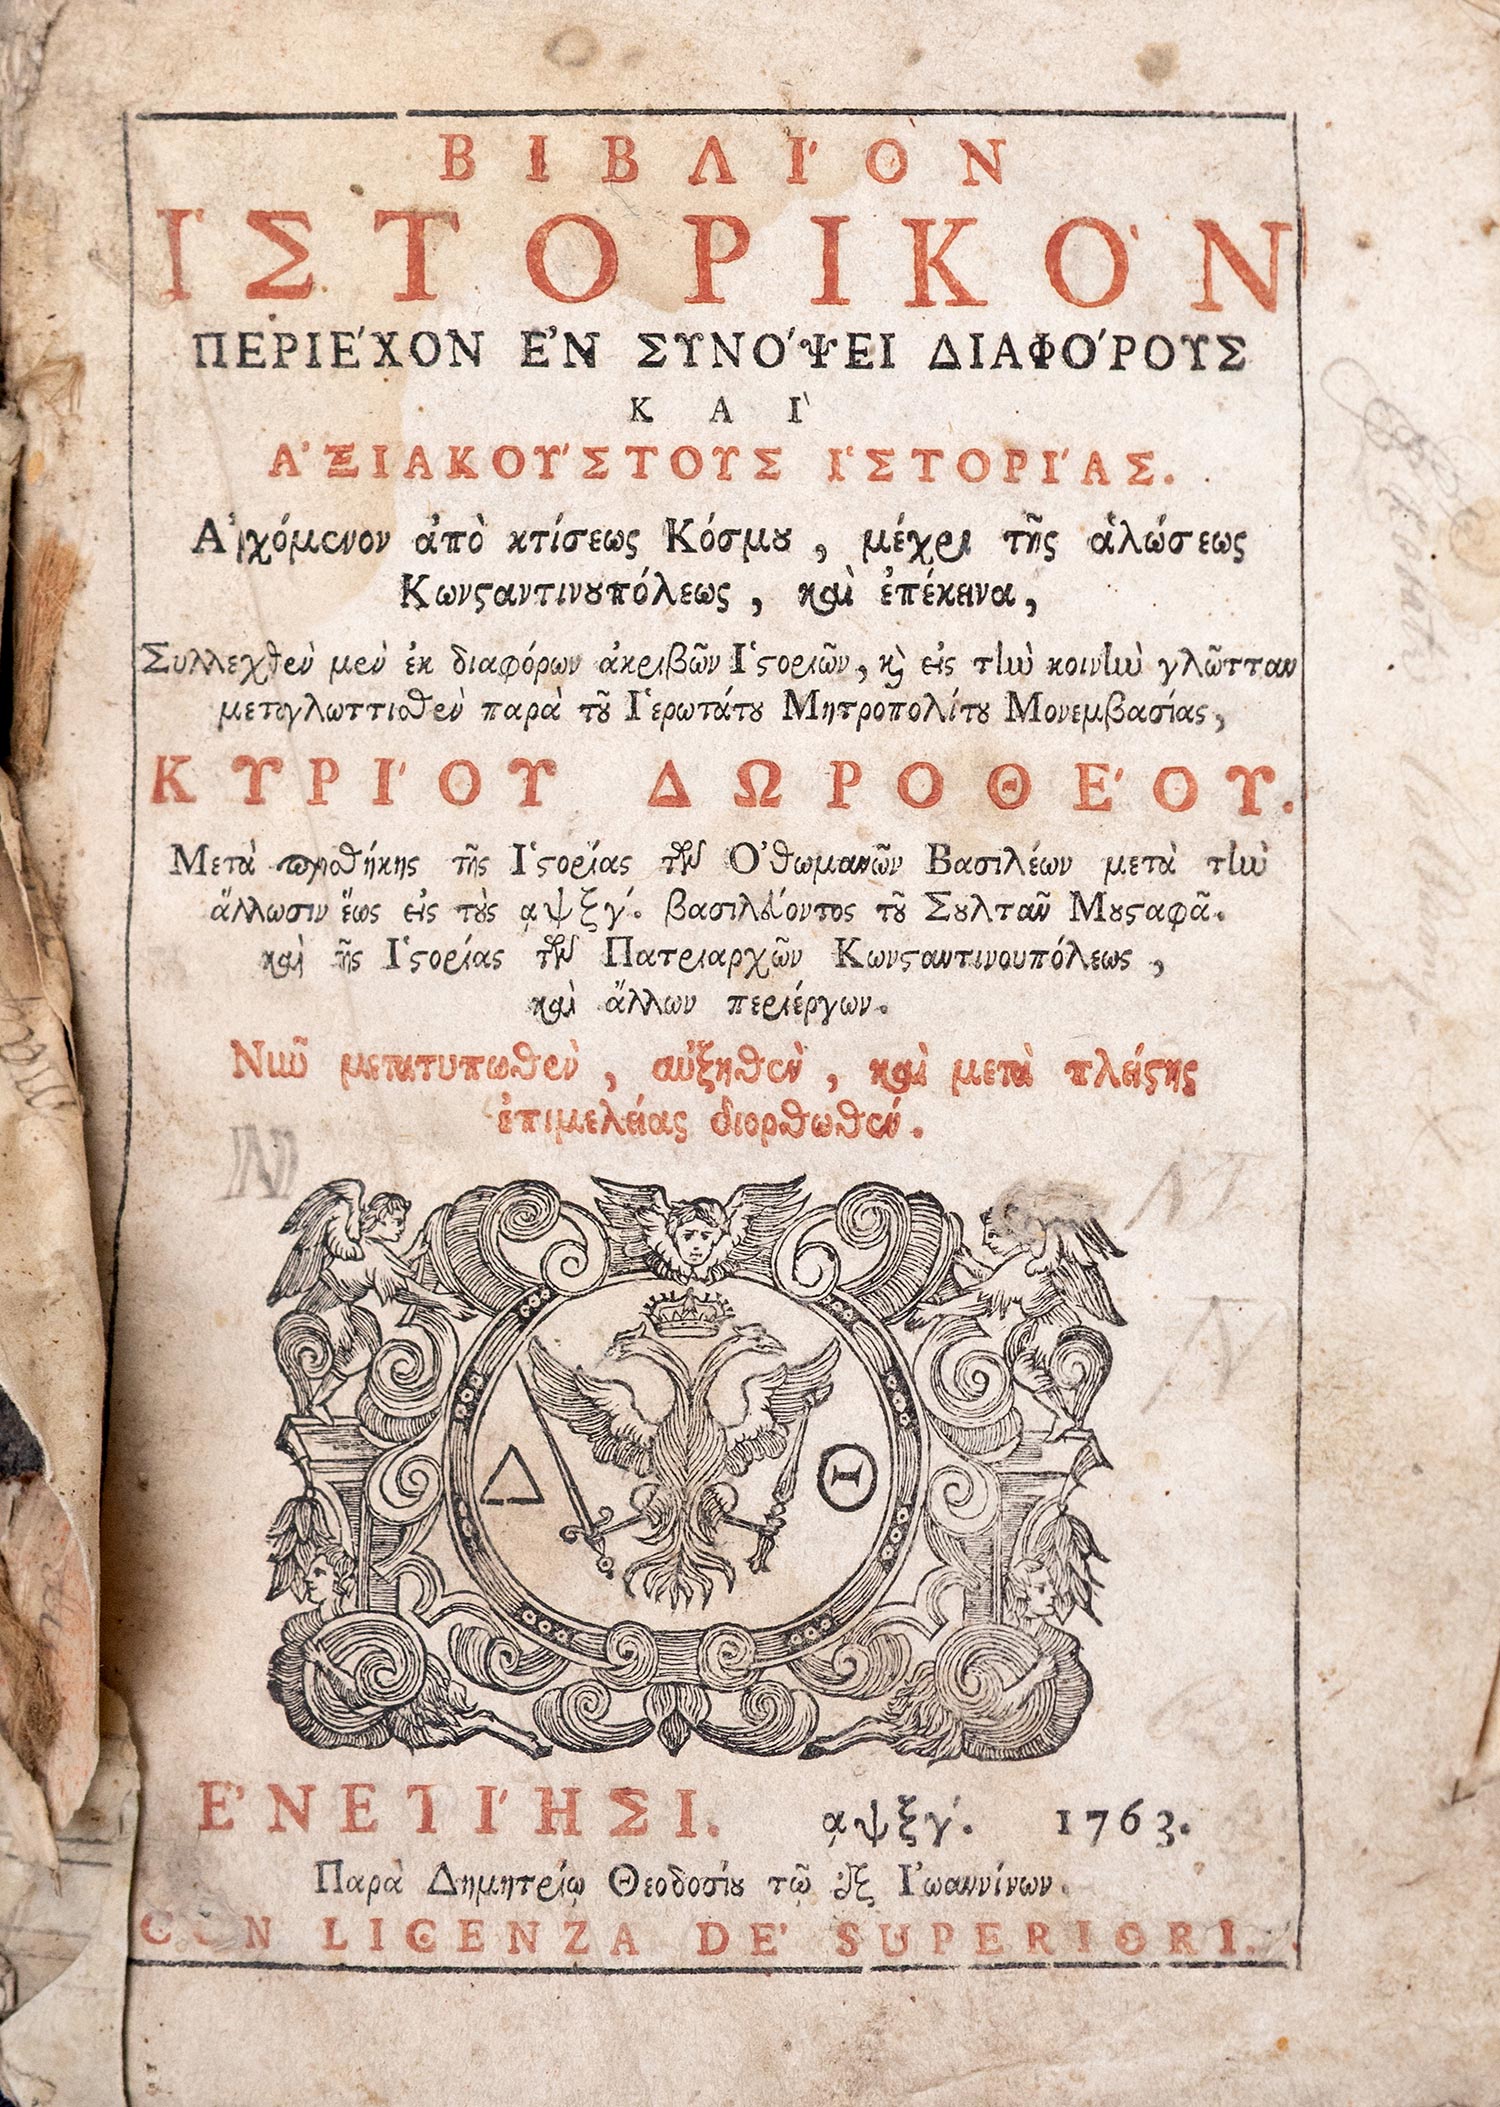 ΒΙΒΛΙ'ΟΝ
Ἱ'ΣΤΟΡΙΚΟ'Ν
ΠΕΡΙΕ'ΧΟΝ Ε'Ν ΣΥΝΟ'ΨΕΙ ΔΙΑΦΟ'ΡΟΥΣ
ΚΑΙ'
Α'ΞΙΑΚΟΥ'ΣΤΟΥΣ Ι'ΣΤΟΡΙ'ΑΣ.
Ἀρχόμενον ἀπὸ κτίσεως Κόσμȣ, μέχρι τῆς ἁλώσεως
Κωνϛαντινȣπόλεως, καὶ ἐπέκεινα,
Συλλεχθὲν μὲν ἐκ διαφόρων ἀκριβῶν Ἱϛοριῶν, κ̀ εἰς τὴν κοινὴν γλῶτταν
μεταγλωττισθὲν παρὰ τȣ͂ Ἱερωτάτȣ Μητροπολίτȣ Μονεμβασίας,
ΚΥΡΙ'ΟΥ ΔΩΡΟΘΕ'ΟΥ.
Μετὰ προσθήκης τῆς Ἱϛορίας τῶν Ὀθωμανῶν Βασιλέων μετὰ τὴν
ἅλλωσιν ἕως εἰς τȣ̀ς ͵αψξγ'. βασιλεύοντος τȣ͂ Σȣλτὰν Μȣϛαφᾶ.
καὶ τῆς Ἱϛορίας τῶν Πατριαρχῶν Κωνϛαντινουπόλεως,
καὶ ἄλλων περιέργων.
Νῦν μετατυπωθὲν, αὐξηθὲν, καὶ μετὰ πλείϛης
ἐπιμελείας διορθωθέν.
Δ Θ
Ε'ΝΕΤΙ'ΗΣΙ. ͵αψξγ'. 1763.
Παρὰ Δημητρίῳ Θεοδοσίȣ τῷ ἐξ Ἰωαννίνων.
CON LICENZA DE' SUPERIORI.